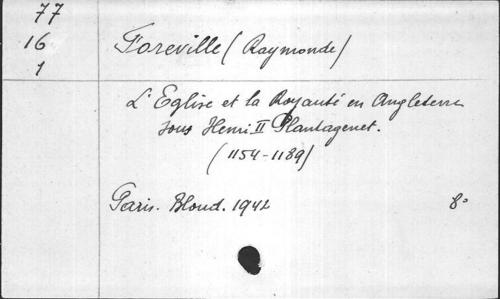 77
16
1
Foreville (Raymonde)
L'Eglise et la Royauté en Angleterre
sous Henri II Plantagenet.
(1154-1189)
Paris. Bloud. 1942 8°